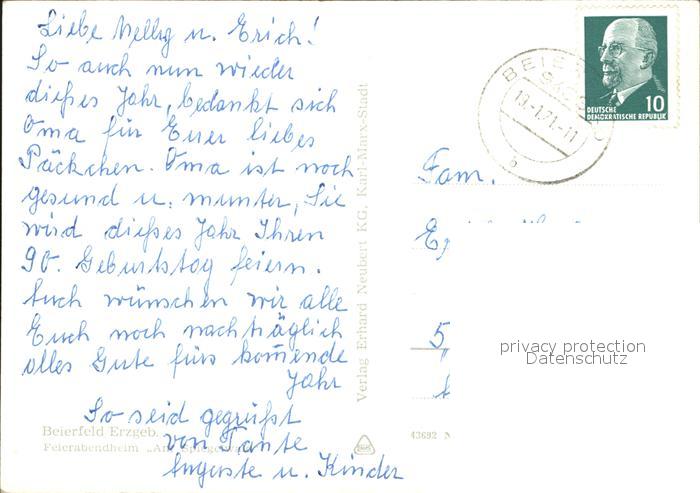 Liebe Melly u. Erich!
So auch nun wieder
dießes Jahr, bedankt sich
Oma für Euer liebes
Päckchen. Oma ist noch
gesund u. munter, Sie
wird dießes Jahr Ihren
90. Geburtstag feiern.
Auch wünschen wir alle
Euch noch nachträglich
alles Gute fürs kom̄ende
Jahr
So seid gegrüßt
von Tante
Auguste u. Kinder
Beierfeld Erzgeb.
Feierabendheim „Am Spiegelwald
Verlag Erhard Neubert KG, Karl-Marx-Stadt
BEIER
19.-1.71.-11
b
DEUTSCHE
DEMOKRATISCHE REPUBLIK
10
Fam.
5
privacy protection
Datenschutz
43692 N